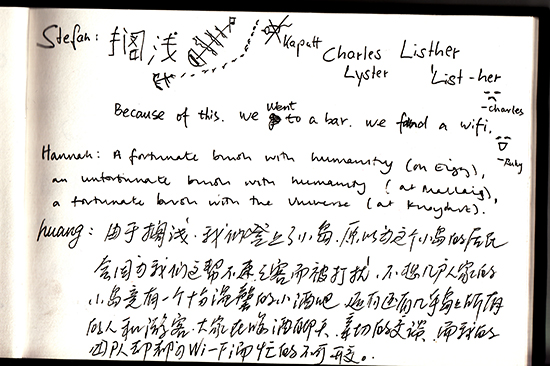 Stefan: 搁浅 Kaputt Charles Listher
Lyster 'List-her
-Charles
Because of this. we went to a bar. we found a wifi.
-Ruby
Hannah: A fortunate brush with humanity (on Eigg),
an unfortunate brush with humanity (at Mallaig),
a fortunate brush with the Universe (at Knoydart).
huang: 由于搁浅.我们登上了小岛.原以为这个小岛的居民
会因为我们这帮不速之客而被打扰,不想几户人家的
小岛竟有一个十分温馨的小酒吧 还有
的人和游客.大家在喝酒聊天,亲切的交谈,而我的
团队却都为Wi-Fi而忙的不可开交。